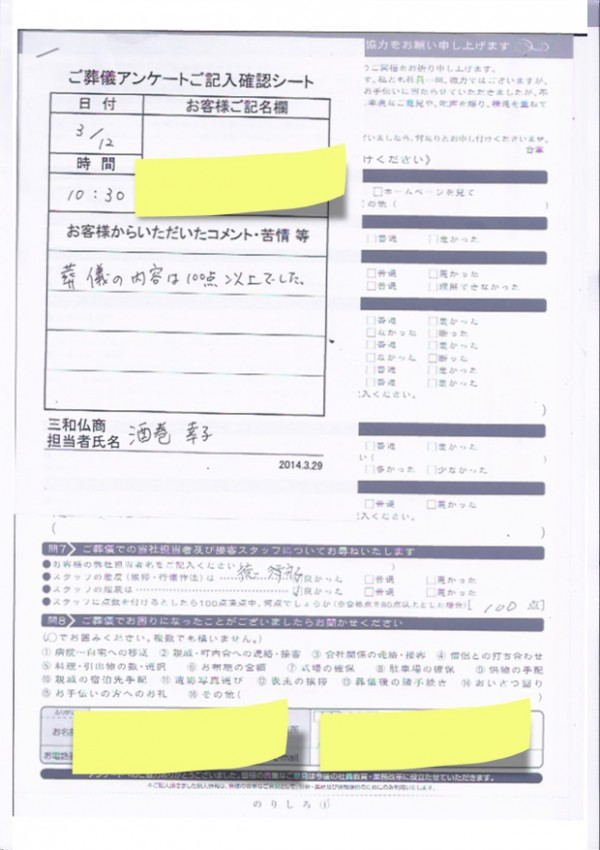 協力をお願い申し上げます
ご葬儀アンケートご記入確認シート
日付
お客様ご記名欄
3/12
時間
10:30
お客様からいただいたコメント・苦情 等
葬儀の内容は100点以上でした。
三和仏商
担当者氏名 酒巻 幸子
2014.3.29
けください》
□ホームページを見て
の他 (
□普通 □悪かった
□普通 □悪かった
□普通 □理解できなかった
□普通 □悪かった
□なかった □断った
□普通 □悪かった
□なかった □断った
□普通 □悪かった
□普通 □悪かった
入ください。
□普通 □悪かった
□多かった □少なかった
□普通 □悪かった
入ください。
問7 ご葬儀での当社担当者及び接客スタッフについてお尋ねいたします
●お客様の弊社担当者名をご記入ください
●スタッフの態度(挨拶・行儀作法)は 良かった □普通 □悪かった
●スタッフの服装は 良かった □普通 □悪かった
●スタッフに点数を付けるとしたら100点満点中、何点でしょうか(※合格点を80点以上とした場合)[ 100 点]
問8 ご葬儀でお困りになったことがございましたらお聞かせください
(○でお囲みください。複数でも構いません。)
① 病院〜自宅への移送 ② 親戚・町内会への連絡・接客 ③ 会社関係の連絡・接客 ④ 僧侶との打ち合わせ
⑤ 料理・引出物の数・選択 ⑥ お布施の金額 ⑦ 式場の確保 ⑧ 駐車場の確保 ⑨ 供物の手配
⑩ 親戚の宿泊先手配 ⑪ 遺影写真選び ⑫ 喪主の挨拶 ⑬ 葬儀後の諸手続き ⑭ おいとつ回り
⑮ お手伝いの方へのお礼 ⑯ その他(
お名
お電話
mail
のりしろ①